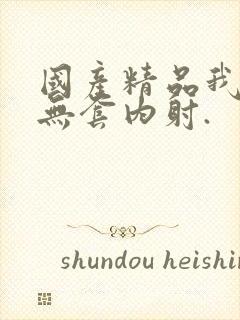 國產精品我
無套内射.
shundou heishin